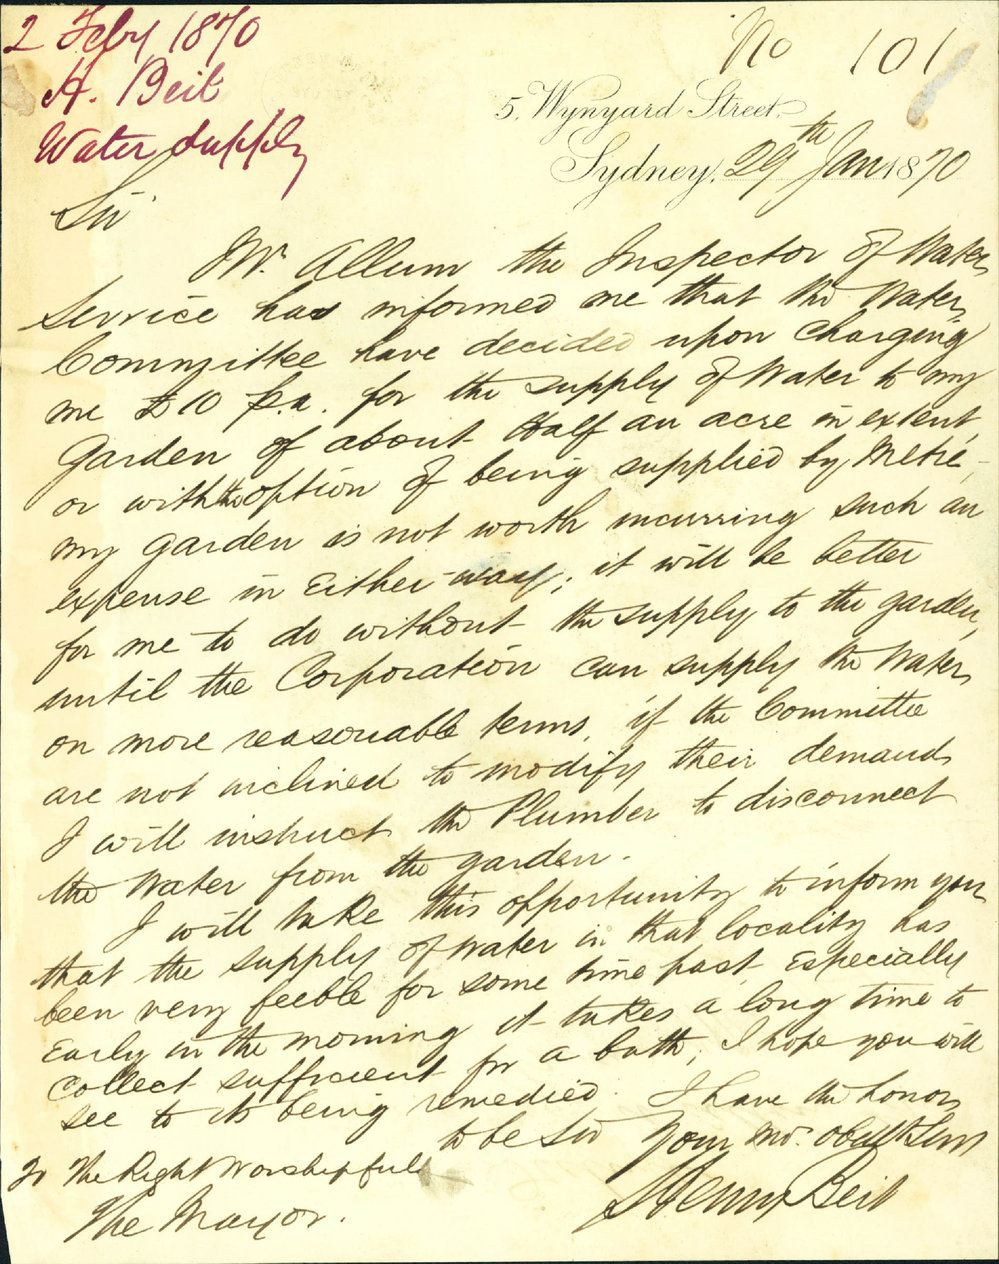 2 Feby 1870
H. Beit
Water Supply
No 101
5, Wynyard Street.
Sydney, 29th Jan 1870
Sir
Mr. Allum the Inspector of Water
Service has informed me that the Water
Committee have decided upon charging
me £10 p.a. for the supply of Water to my
Garden of about Half an acre in extent,
or with the option of being supplied by Metre -
my garden is not worth incurring such an
expense in Either way; it will be better
for me to do without the supply to the garden,
until the Corporation can supply the Water
on more reasonable terms, if the Committee
are not inclined to modify their demands
I will instruct the Plumber to disconnect
the Water from the garden.
I will take this opportunity to inform you
that the supply of Water in that locality has
been very feeble for some time past, Especially
Early in the morning it takes a long time to
Collect sufficient for a bath; I hope you will
see to its being remedied. I have the honor
to be Sir
Your mo. obedt Servt
Henry Beit
To The Right Worshipfull
The Mayor.